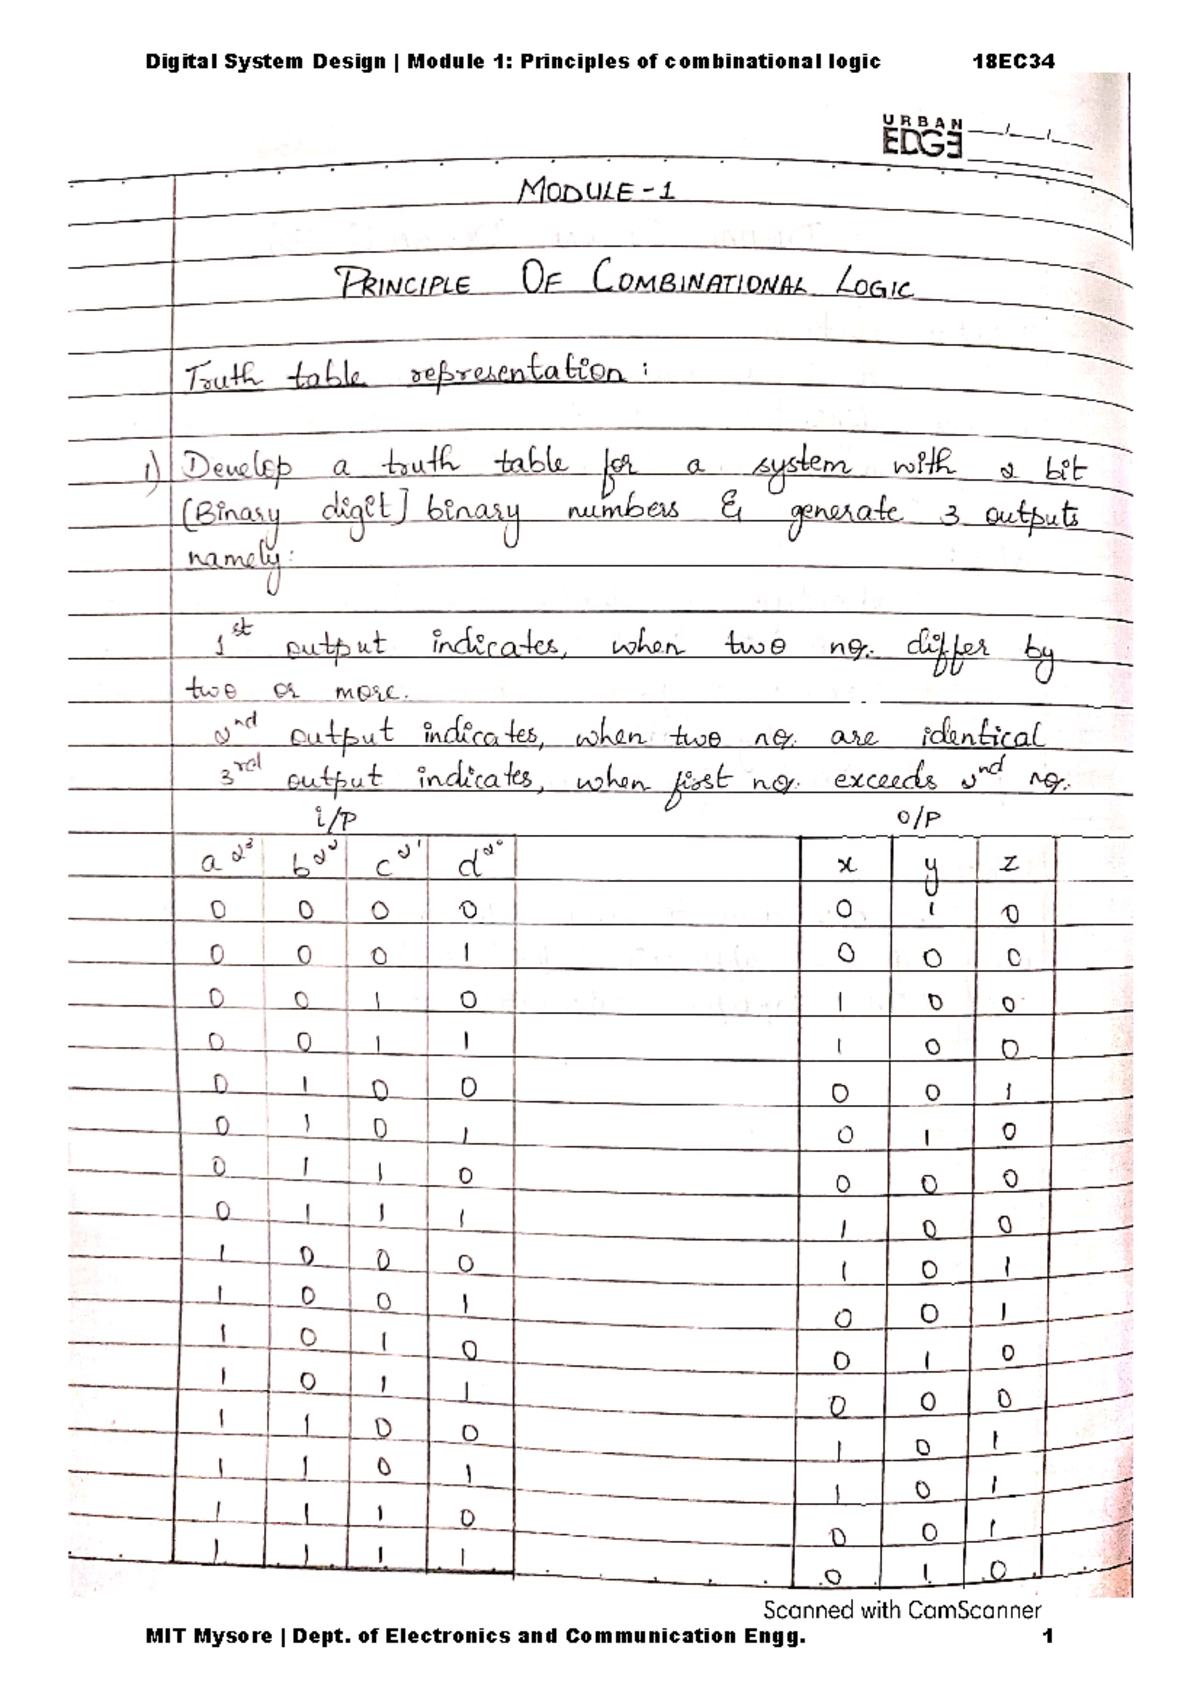 Digital System Design | Module 1: Principles of combinational logic 18EC34
URBAN
EDGE
MODULE-1
PRINCIPLE OF COMBINATIONAL LOGIC
Truth table representation :
1) Develop a truth table for a system with 2 bit
(Binary digit] binary numbers & generate 3 outputs
namely:
1st output indicates, when two no. differ by
two or more.
2nd output indicates, when two no. are identical
3rd output indicates, when first no. exceeds 2nd no.
i/P O/P
a 2³ b 2² c 2¹ d 2⁰ x y z
0 0 0 0 0 1 0
0 0 0 1 0 0 0
0 0 1 0 1 0 0
0 0 1 1 1 0 0
0 1 0 0 0 0 1
0 1 0 1 0 1 0
0 1 1 0 0 0 0
0 1 1 1 1 0 0
1 0 0 0 1 0 1
1 0 0 1 0 0 1
1 0 1 0 0 1 0
1 0 1 1 0 0 0
1 1 0 0 1 0 1
1 1 0 1 1 0 1
1 1 1 0 0 0 1
1 1 1 1 0 1 0
Scanned with CamScanner
MIT Mysore | Dept. of Electronics and Communication Engg. 1